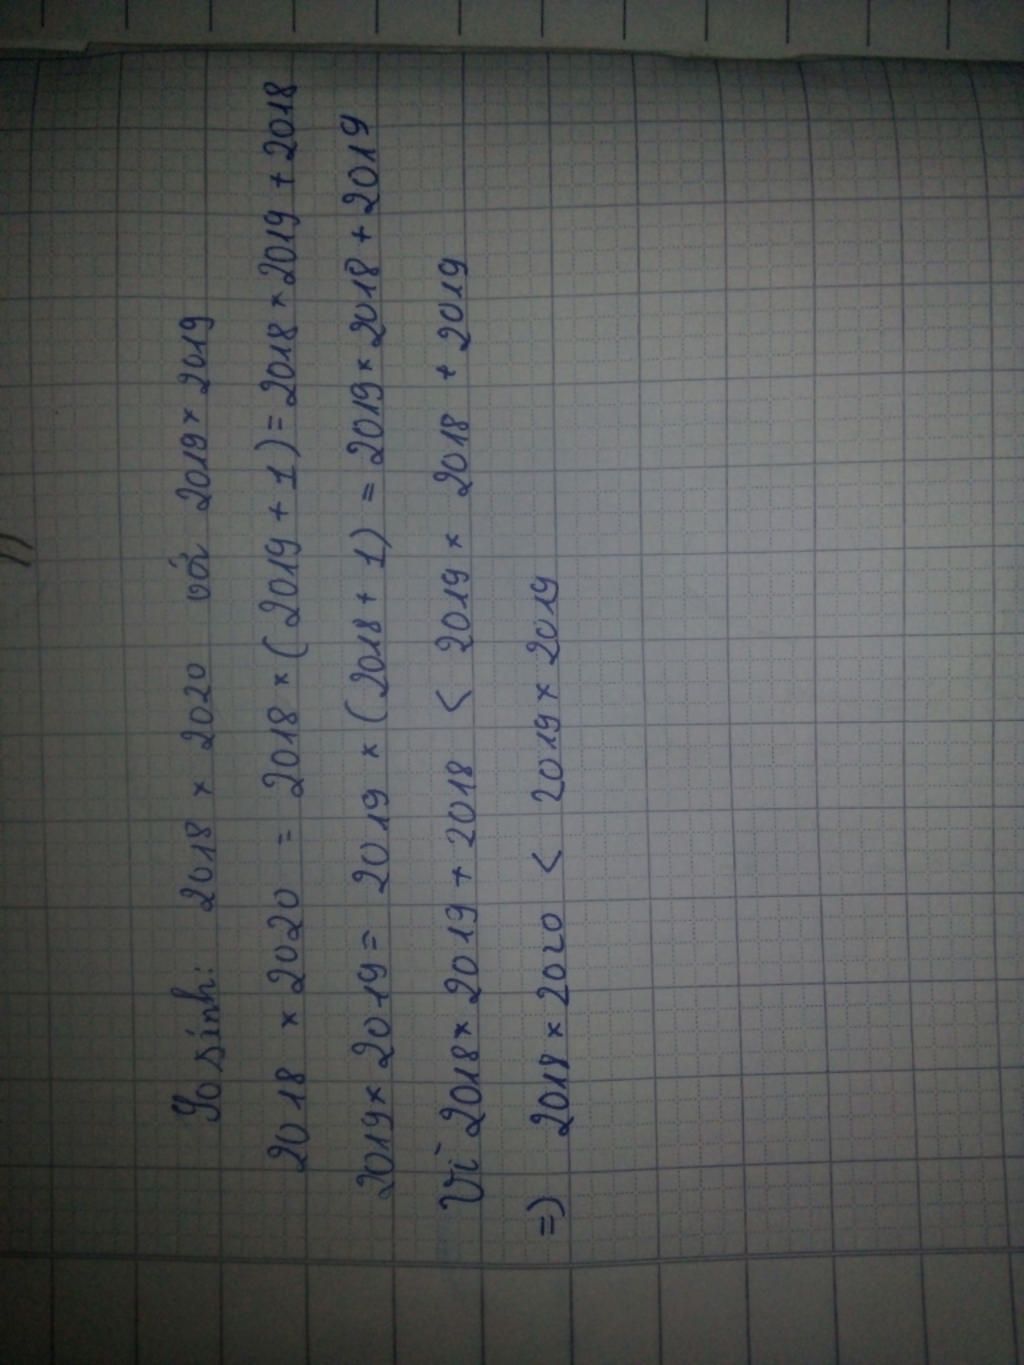 So sính: 2018 × 2020 với 2019 × 2019
2018 × 2020 = 2018 × (2019 + 1) = 2018 × 2019 + 2018
2019 × 2019 = 2019 × (2018 + 1) = 2019 × 2018 + 2019
Vì 2018 × 2019 + 2018 < 2019 × 2018 + 2019
=) 2018 × 2020 < 2019 × 2019